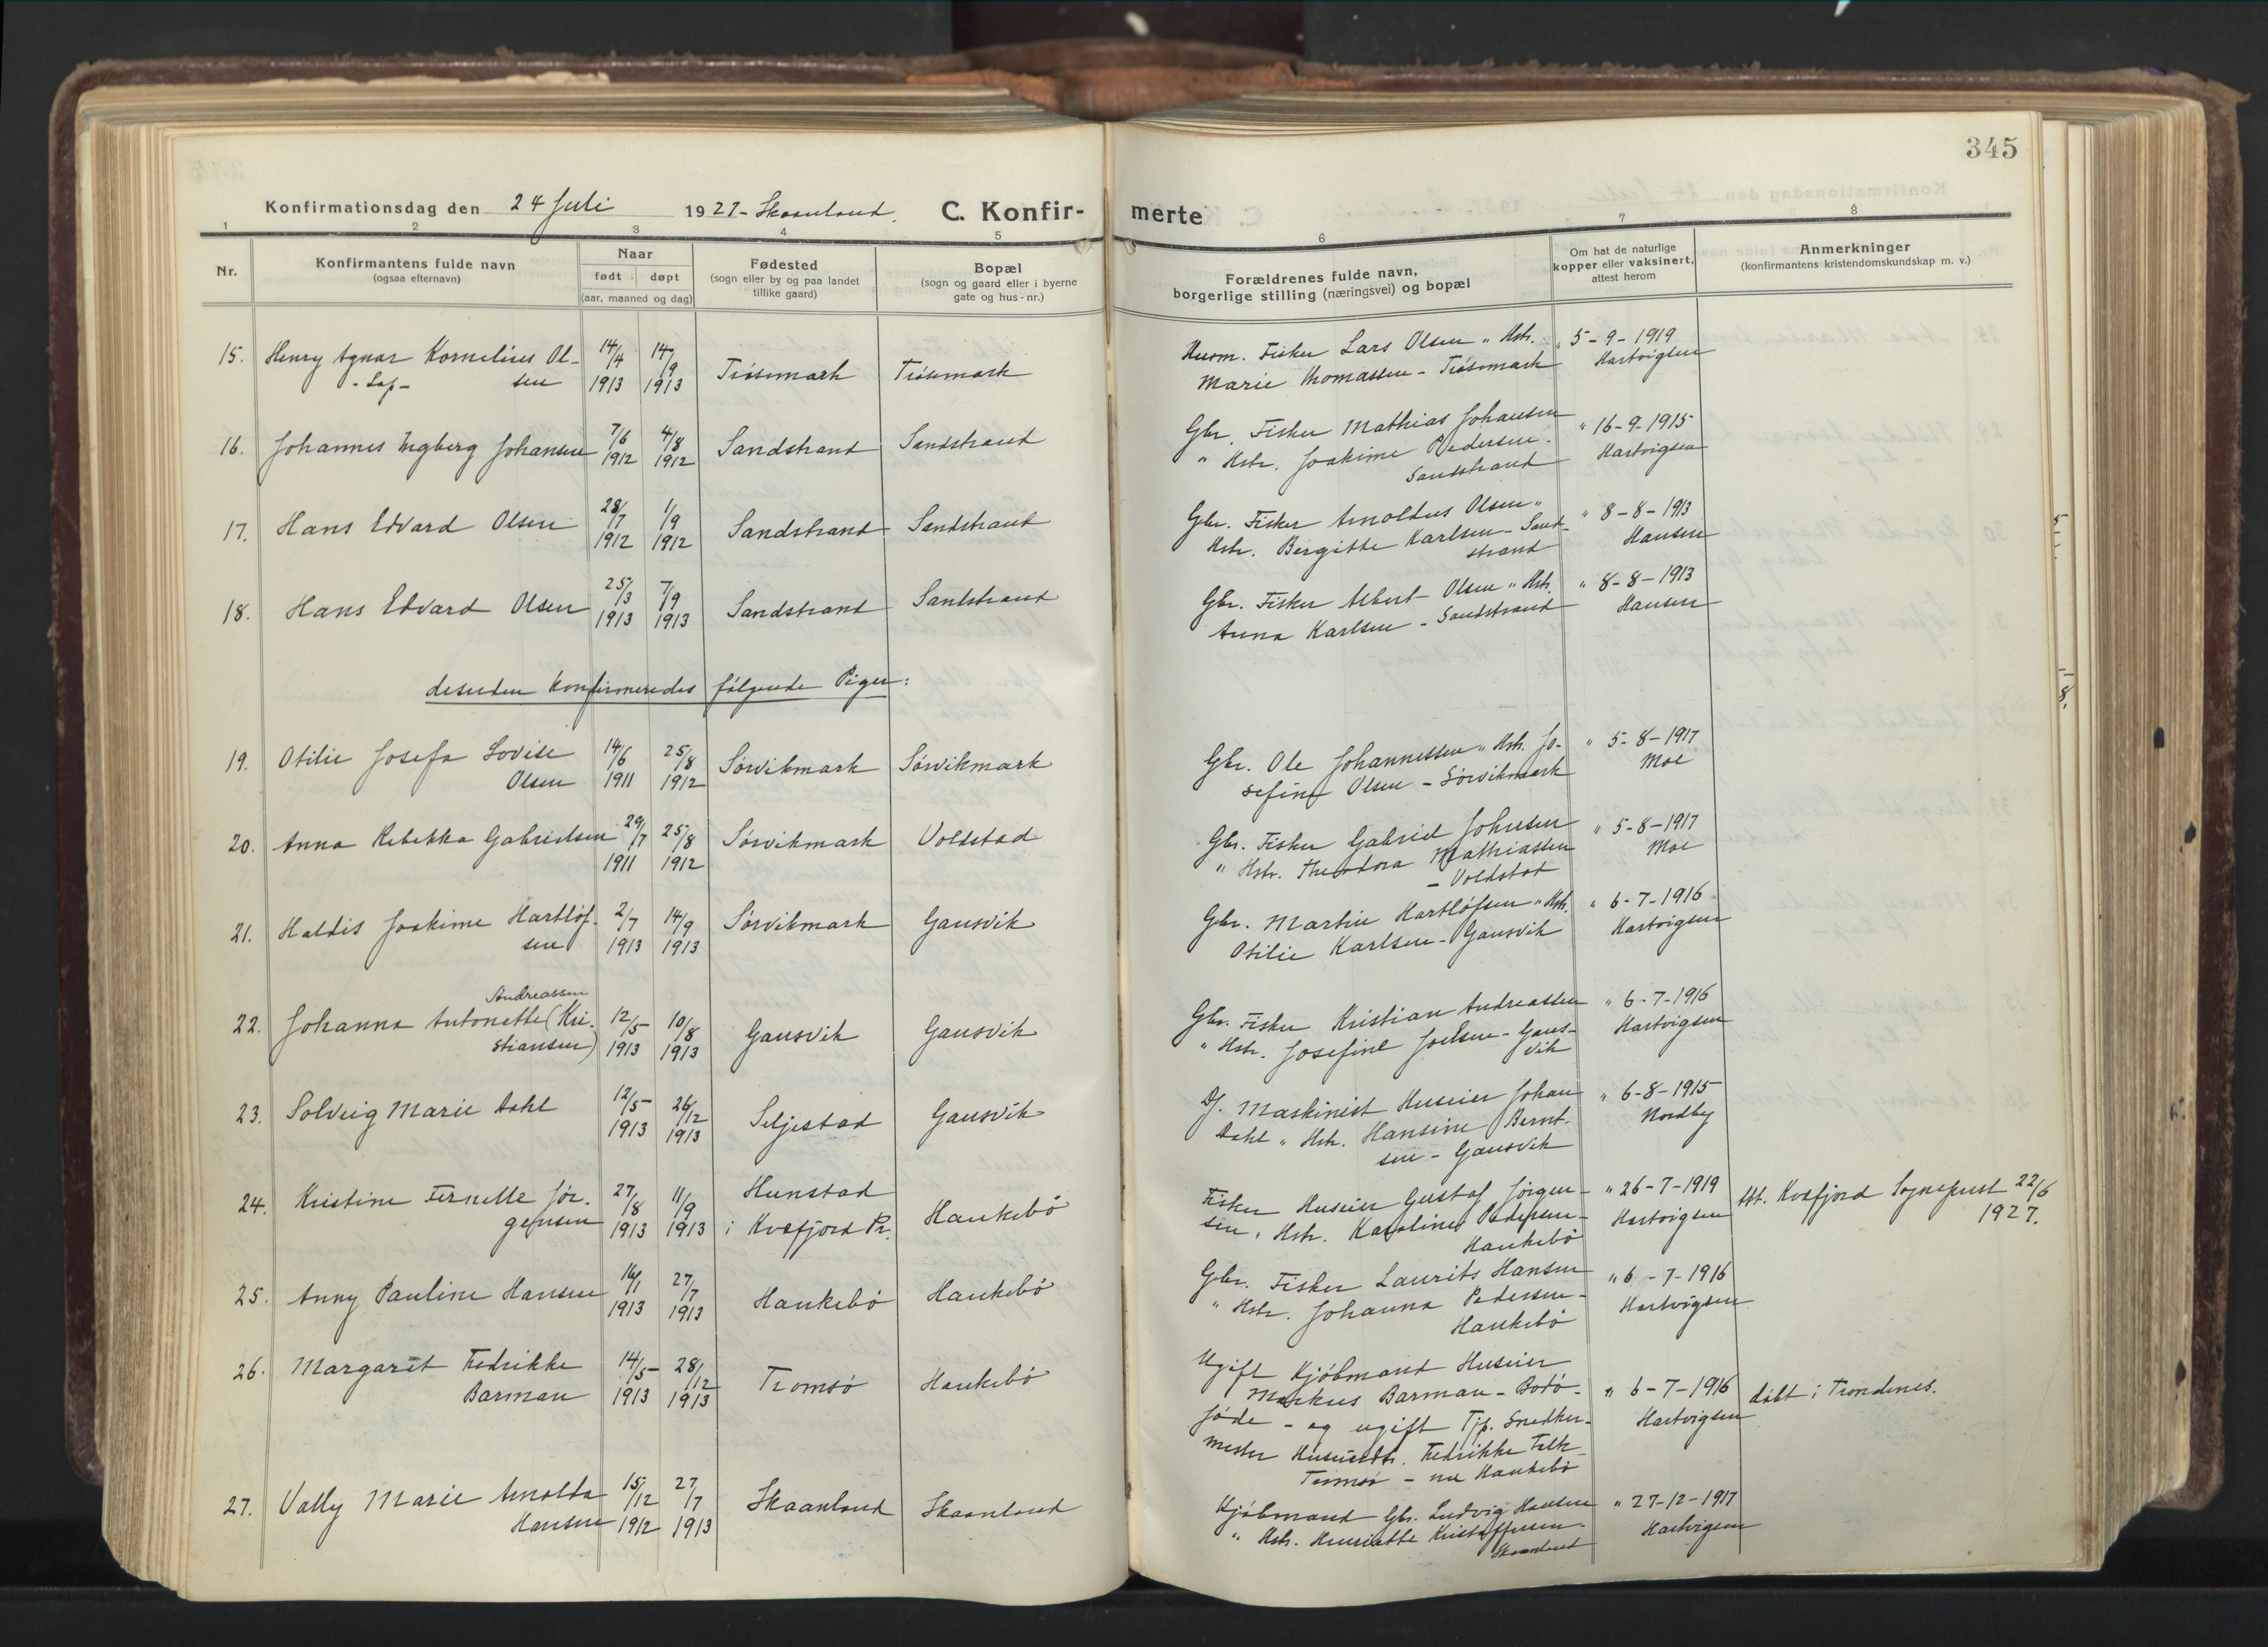 345
Konfirmationsdag den 24 Juli 1927 - Skaanland. C. Konfir- merte
1 2 3 4 5 6 7 8
Nr.
Konfirmantens fulde navn
(ogsaa efternavn)
Naar
født døpt
(aar, maaned og dag)
Fødested
(sogn eller by og paa landet
tillike gaard)
Bopæl
(sogn og gaard eller i byerne
gate og hus-nr.)
Forældrenes fulde navn,
borgerlige stilling (næringsvei) og bopæl
Om hat de naturlige
kopper eller vaksinert,
attest herom
Anmerkninger
(konfirmantens kristendomskundskap m. v.)
15. Henry Agnar Kornelius Ol-
- Lap - sen
14/4 1913
14/9 1913
Trøsemark
Trøsemark
Husm. Fisker Lars Olsen " Hstr.
Marie Thomassen - Trøsemark
" 5-9-1919
Hartvigsen
16. Johannes Ingberg Johansen
7/6 1912
4/8 1912
Sandstrand
Sandstrand
Gbr. Fisker Mathias Johansen
" Hstr. Joakime Pedersen -
Sandstrand
" 16-9-1915
Hartvigsen
17. Hans Edvard Olsen
28/7 1912
1/9 1912
Sandstrand
Sandstrand
Gbr. Fisker Arnoldus Olsen "
Hstr. Bergitte Karlsen - Sand-
strand
" 8-8-1913
Hansen
18. Hans Edvard Olsen
25/3 1913
7/9 1913
Sandstrand
Sandstrand
Gbr. Fisker Albert Olsen " Hstr.
Anna Karlsen - Sandstrand
" 8-8-1913
Hansen
desuden konfirmeredes følgende Piger:
19. Otilie Josefa Lovise
Olsen
14/6 1911
25/8 1912
Sørvikmark
Sørvikmark
Gbr. Ole Johannessen " Hstr. Jo-
sefine Olsen - Sørvikmark
" 5-8-1917
Moe
20. Anna Rebekka Gabrielsen
29/7 1911
25/8 1912
Sørvikmark
Voldstad
Gbr. Fisker Gabriel Johnsen
" Hstr. Theodora Mathiassen
- Voldstad
" 5-8-1917
Moe
21. Haldis Joakime Hartløf-
sen
2/7 1913
14/9 1913
Sørvikmark
Gausvik
Gbr. Martin Hartløfsen " Hstr.
Otilie Karlsen - Gausvik
" 6-7-1916
Hartvigsen
Andreassen
22. Johanna Antonette (Kri-
stiansen)
12/5 1913
10/8 1913
Gausvik
Gausvik
Gbr. Fisker Kristian Andreassen
" Hstr. Josefine Joelsen - Gaus-
vik
" 6-7-1916
Hartvigsen
23. Solveig Marie Dahl
12/5 1913
26/12 1913
Seljestad
Gausvik
Df. Maskinist Huseier Johan
Dahl " Hstr. Hansine Bernt-
sen - Gausvik
" 6-8-1915
Nordby
24. Kristine Fernette Jør-
gensen
27/8 1913
11/9 1913
Hunstad
i Kvæfjord Pr.
Haukebø
Fisker Huseier Gustaf Jørgen-
sen " Hstr. Karoline Pedersen -
Haukebø
" 26-7-1919
Hartvigsen
Att. Kvæfjord Sogneprest 22/6
1927.
25. Anny Pauline Hansen
16/1 1913
27/7 1913
Haukebø
Haukebø
Gbr. Fisker Laurits Hansen
" Hstr. Johanna Pedersen -
Haukebø
" 6-7-1916
Hartvigsen
26. Margaret Fredrikke
Barman
14/5 1913
28/12 1913
Tromsø
Haukebø
Ugift Kjøbmand Huseier
Markus Barman - Bodø-
føde - og ugift Tjp. Snedker-
mester Fredrikke Falk
Tromsø - nu Haukebø
" 6-7-1916
Hartvigsen
døbt i Trondenes.
27. Vally Marie Arnolda
Hansen
15/12 1912
27/7 1913
Skaanland
Skaanland
Kjøbmand Gbr. Ludvig Hansen
" Hstr. Henriette Kristoffersen -
Skaanland
" 27-12-1917
Hartvigsen